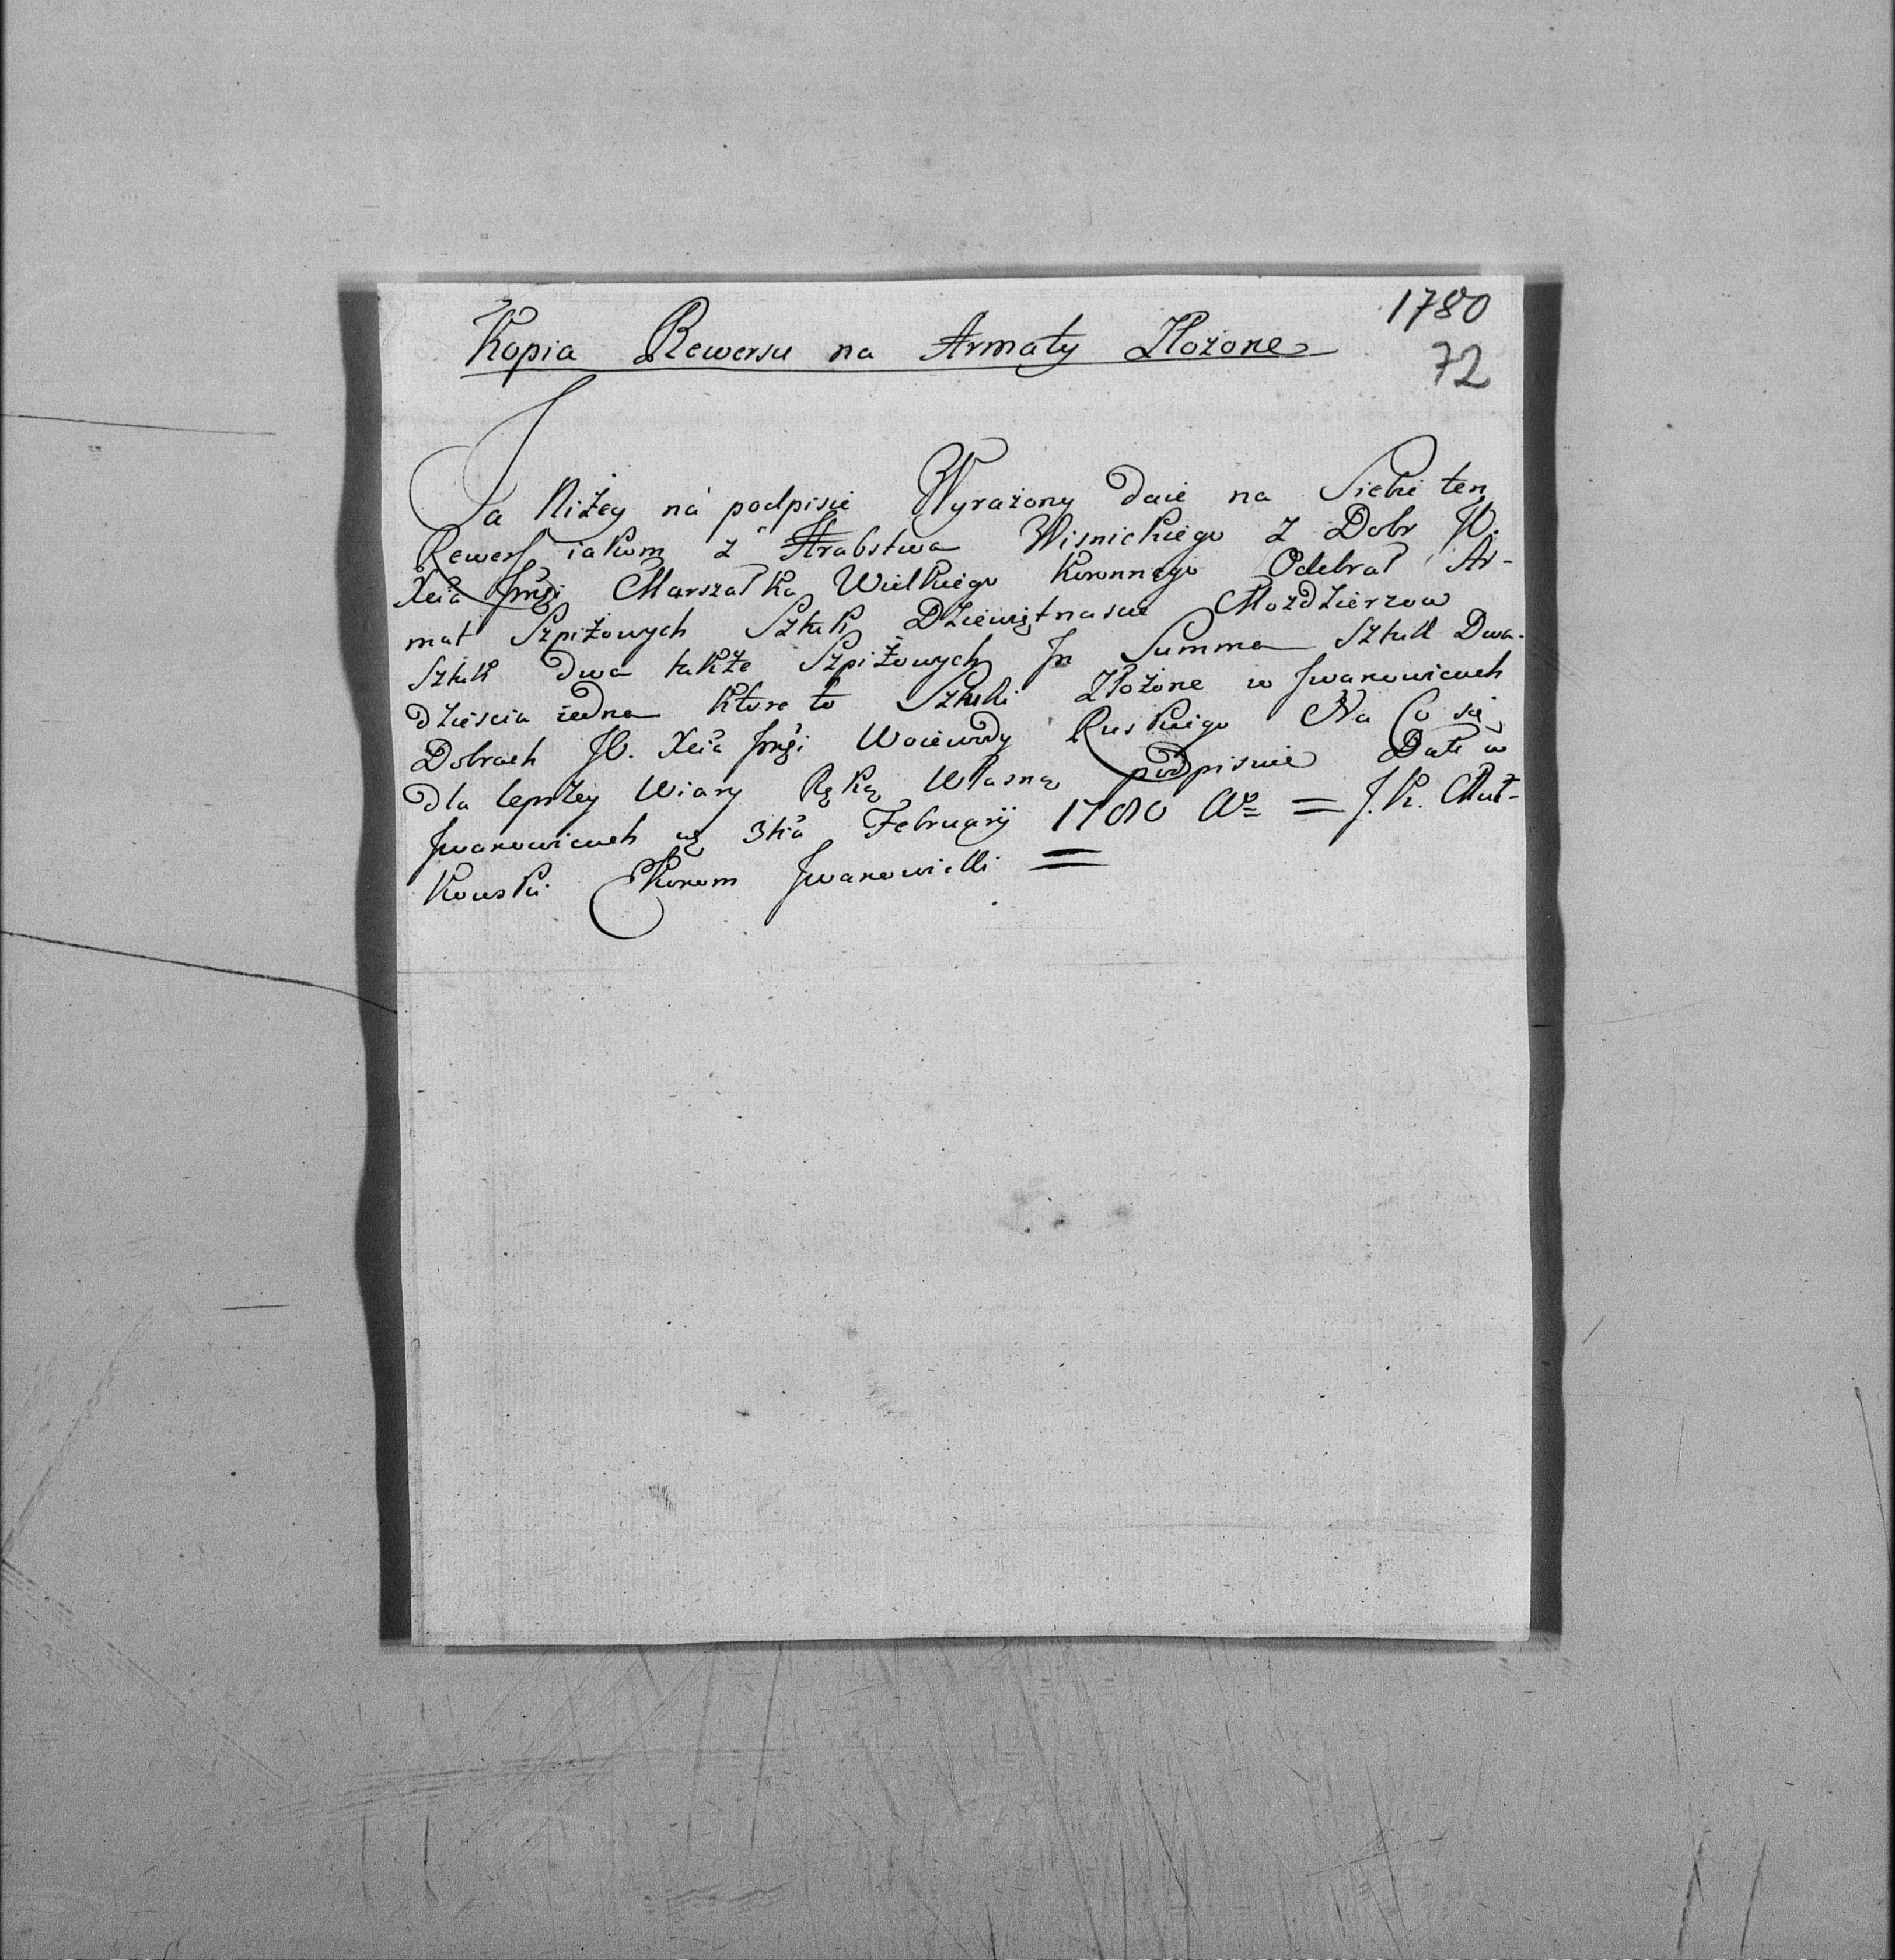 1780
Kopia Rewersu na Armaty Złożone
72
Ja Niżey na podpisie Wyrażony daie na Siebie ten
Rewers iakom z Hrabstwa Wisnickiego z Dobr JO.
Xcia Jmći Marszałka Wielkiego Koronnego Odebrał Ar-
mat Szpiżowych Sztuk Dziewiętnascie Mozdzierzow
Sztuk dwa także Szpiżowych In Summa Sztuk Dwa-
dziescia iedna ktore to Sztuki Złożone w Iwanowicach
Dobrach JO. Xcia Jmći Woiewody Ruskiego Na Co się
dla lepszey Wiary Ręką Własną podpisuie Dat: w
Iwanowicach 3tia February 1780 Ao = J. K.
Ekonom Iwanowicki =